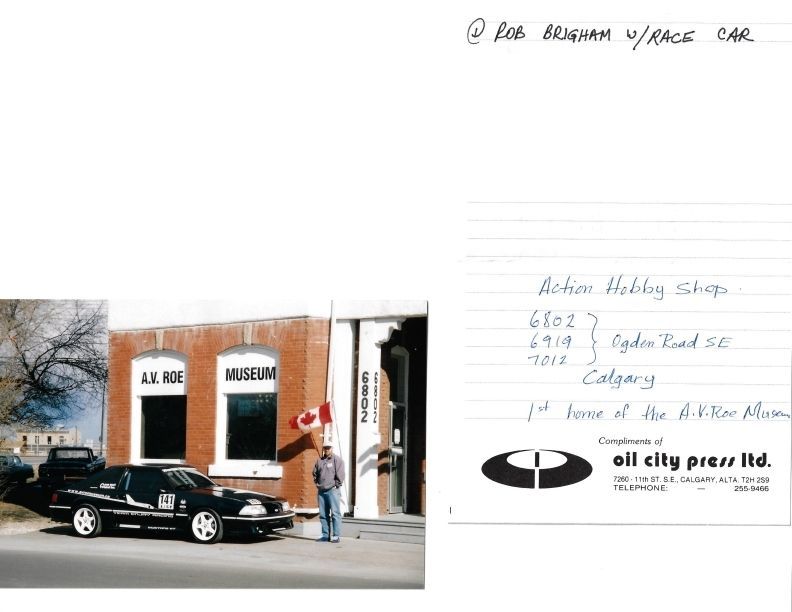 ① ROB BRIGHAM W/RACE CAR
A.V. ROE
MUSEUM
6802
6802
141
Action Hobby Shop.
6802
6919
7012
Ogden Road SE
Calgary
1st home of the A.V. Roe Museum
Compliments of
oil city press ltd.
7260 - 11th ST. S.E., CALGARY, ALTA. T2H 2S9
TELEPHONE: — 255-9466